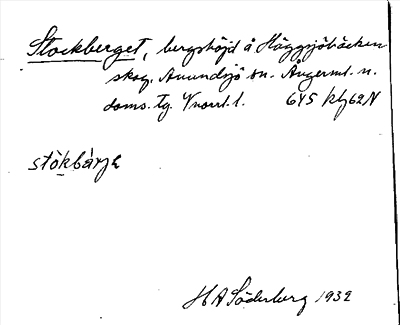 Stockberget, bergshöjd å Häggsjöbäcken
skog. Anundsjö sn. Ångerml. n.
doms. tg. Vnorrl. l. 645 kbj62N
stòkbàrjɛ
H A Söderberg 1932